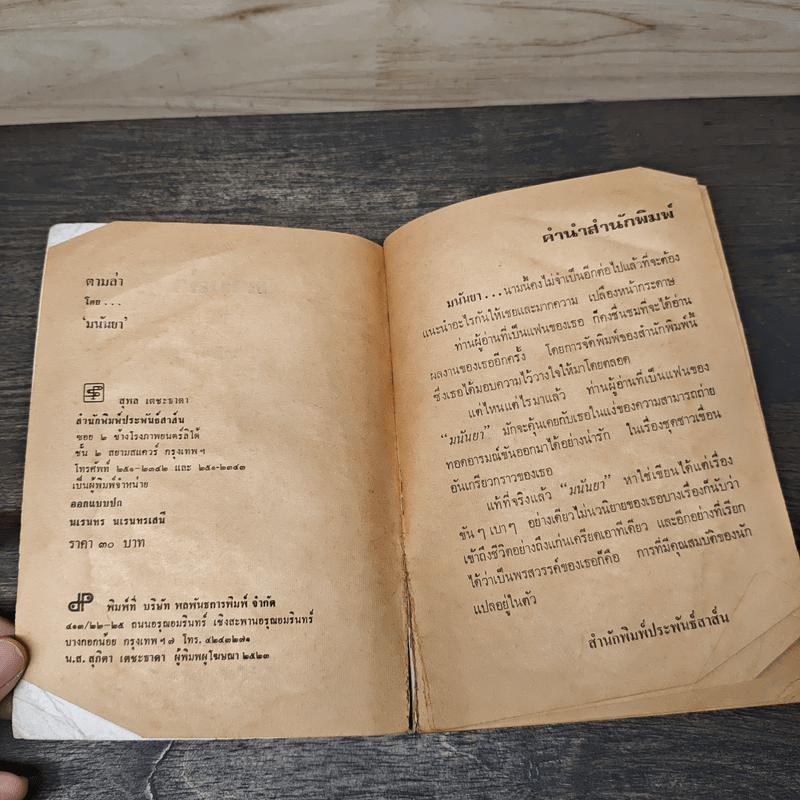 ตามล่า
โดย...
'มนันยา'
สุพล เตชะธาดา
สำนักพิมพ์ประพันธ์สาส์น
ซอย ๒ ข้างโรงภาพยนตร์ลิโด้
ชั้น ๒ สยามสแควร์ กรุงเทพฯ
โทรศัพท์ ๒๕๑-๒๓๔๒ และ ๒๕๑-๒๓๔๓
เป็นผู้พิมพ์จำหน่าย
ออกแบบปก
นเรนทร นเรนทรเสนี
ราคา ๓๐ บาท
พิมพ์ที่ บริษัท พลพันธการพิมพ์ จำกัด
๔๑๓/๒๒-๒๕ ถนนอรุณอมรินทร์ เชิงสะพานอรุณอมรินทร์
บางกอกน้อย กรุงเทพฯ ๗ โทร. ๔๒๔๓๒๗๑
น.ส. สุภิตา เตชะธาดา ผู้พิมพ์ผู้โฆษณา ๒๕๒๓
คำนำสำนักพิมพ์
มนันยา...นามนี้คงไม่จำเป็นอีกต่อไปแล้วที่จะต้อง
แนะนำอะไรกันให้เชยและมากความ เปลืองหน้ากระดาษ
ท่านผู้อ่านที่เป็นแฟนของเธอ ก็คงชื่นชมที่จะได้อ่าน
ผลงานของเธออีกครั้ง โดยการจัดพิมพ์ของสำนักพิมพ์นี้
ซึ่งเธอได้มอบความไว้วางใจให้มาโดยตลอด
แต่ไหนแต่ไรมาแล้ว ท่านผู้อ่านที่เป็นแฟนของ
"มนันยา" มักจะคุ้นเคยกับเธอในแง่ของความสามารถถ่าย
ทอดอารมณ์ขันออกมาได้อย่างน่ารัก ในเรื่องชุดชาวเขื่อน
อันเกรียวกราวของเธอ
แท้ที่จริงแล้ว "มนันยา" หาใช่เขียนได้แต่เรื่อง
ขันๆ เบาๆ อย่างเดียวไม่นวนิยายของเธอบางเรื่องก็นับว่า
เข้าถึงชีวิตอย่างถึงแก่นเครียดเอาทีเดียว และอีกอย่างที่เรียก
ได้ว่าเป็นพรสวรรค์ของเธอก็คือ การที่มีคุณสมบัติของนัก
แปลอยู่ในตัว
สำนักพิมพ์ประพันธ์สาส์น